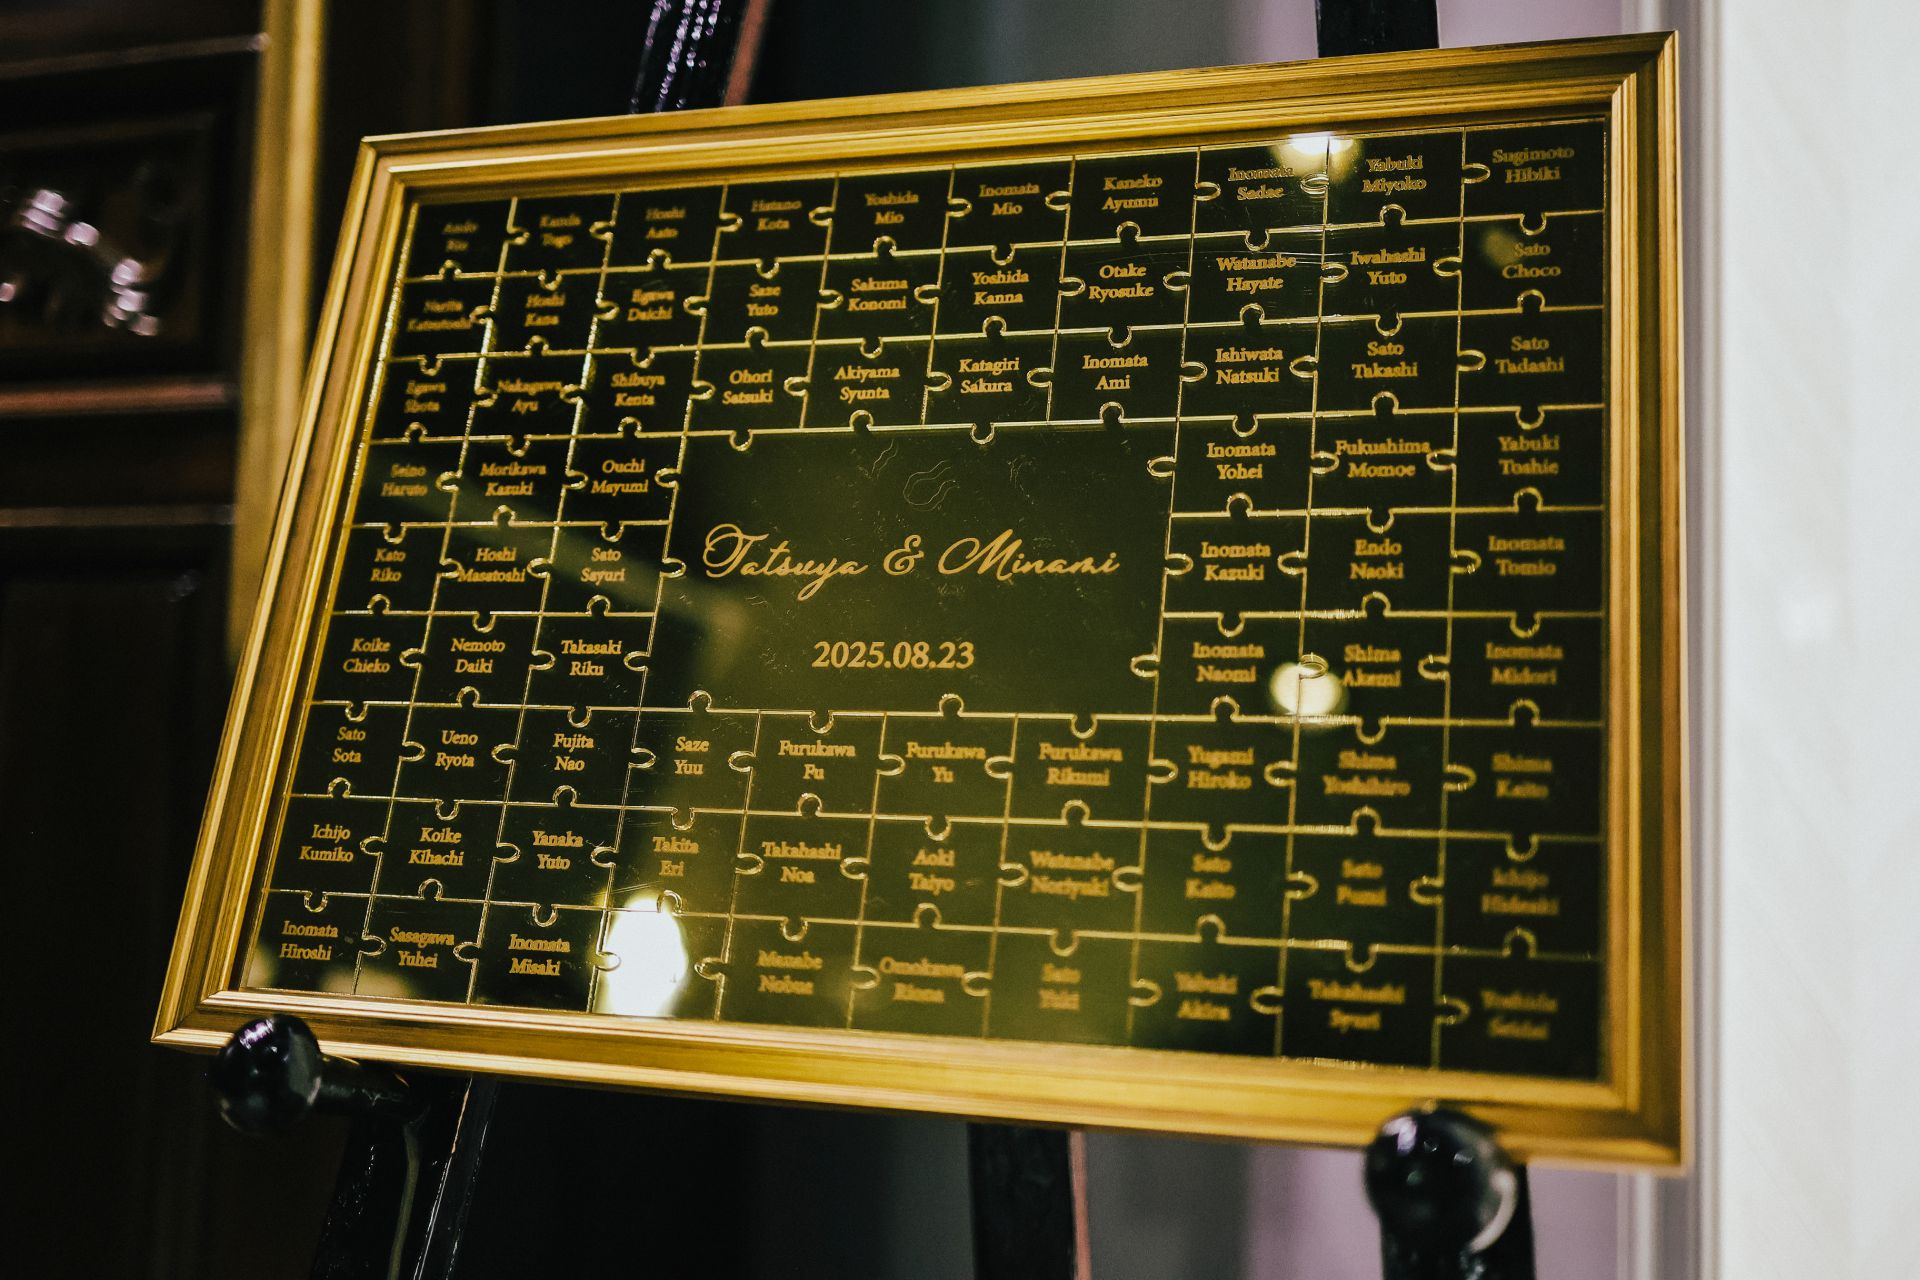 Kanda
Togo
Hoshi
Aato
Hatano
Kota
Yoshida
Mio
Inomata
Mio
Kaneko
Ayumu
Inomata
Sadae
Yabuki
Miyoko
Sugimoto
Hibiki
Narita
Katsutoshi
Hoshi
Kana
Egawa
Daichi
Saze
Yuto
Sakuma
Konomi
Yoshida
Kanna
Otake
Ryosuke
Watanabe
Hayate
Iwahashi
Yuto
Sato
Choco
Egawa
Shota
Nakagawa
Ayu
Shibuya
Kenta
Ohori
Satsuki
Akiyama
Syunta
Katagiri
Sakura
Inomata
Ami
Ishiwata
Natsuki
Sato
Takashi
Sato
Tadashi
Seino
Haruto
Morikawa
Kazuki
Ouchi
Mayumi
Inomata
Yohei
Fukushima
Momoe
Yabuki
Toshie
Kato
Riko
Hoshi
Masatoshi
Sato
Sayuri
Tatsuya & Minami
Inomata
Kazuki
Endo
Naoki
Inomata
Tomio
Koike
Chieko
Nemoto
Daiki
Takasaki
Riku
2025.08.23
Inomata
Naomi
Shima
Akemi
Inomata
Midori
Sato
Sota
Ueno
Ryota
Fujita
Nao
Saze
Yuu
Furukawa
Fu
Furukawa
Yu
Furukawa
Rikumi
Yugami
Hiroko
Shima
Yoshihiro
Shima
Kaito
Ichijo
Kumiko
Koike
Kihachi
Yanaka
Yuto
Takita
Eri
Takahashi
Noa
Aoki
Taiyo
Watanabe
Noriyuki
Sato
Kaito
Sato
Fumi
Ichijo
Hideaki
Inomata
Hiroshi
Sasagawa
Yuhei
Inomata
Misaki
Manabe
Nobue
Omokawa
Riona
Sato
Yuki
Yabuki
Akira
Takahashi
Syuri
Yoshida
Seidai